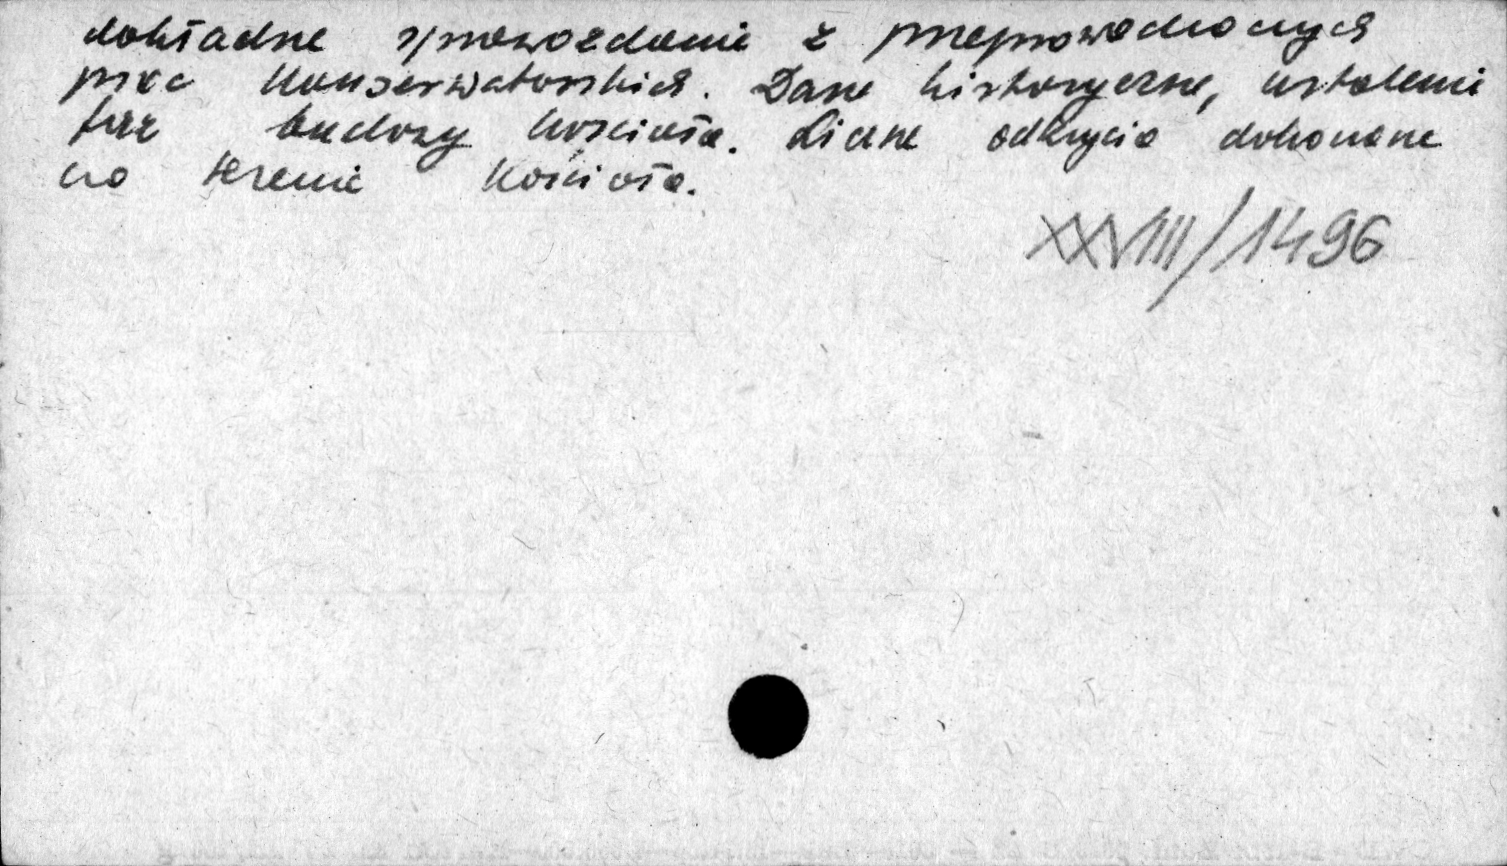 dokładne sprawozdanie z przeprowadzonych
prac konserwatorskich. Dane historyczne, ustalenie
faz budowy kościoła. Liczne odkrycia dokonane
na terenie kościoła.
XXVIII/1496